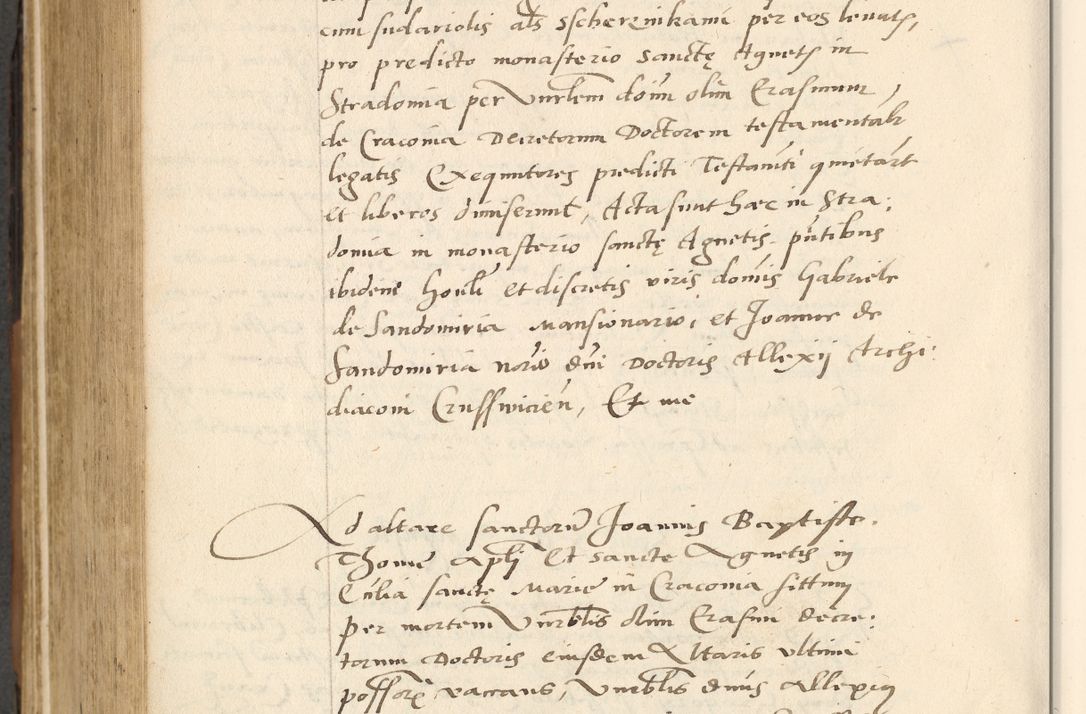 cum sudariolis als Sscherznikami per eos levatis,
pro predicto monasterio Sanctę Agnetis in
Stradomia per Vnrlem dom olim Erasmum,
de Cracovia Decretorum Doctorem testamentalr
legatis Exequutores predicti Testamti quietart
et liberos dimiserunt, Acta sunt hæc in Stra:
domia in monasterio sanctę Agnetis pntibus
ibidem honli et discretis viris domis Gabriele
de Sandomiria Mansionario, et Joanne de
Sandomiria norio dni Doctoris Allexij Archi:
diaconi Crusswicien, Et me
Ad altare sanctoru Joannis Baptiste.
Thome Apli Et sancte Agnetis in
Eccľia sanctę Marie in Cracovia situm
per mortem Vnrblis olim Erasmi decre:
torum Doctoris eiusdem Altaris vltimi
possoris vaccans, Vnrblis dnus Allexius